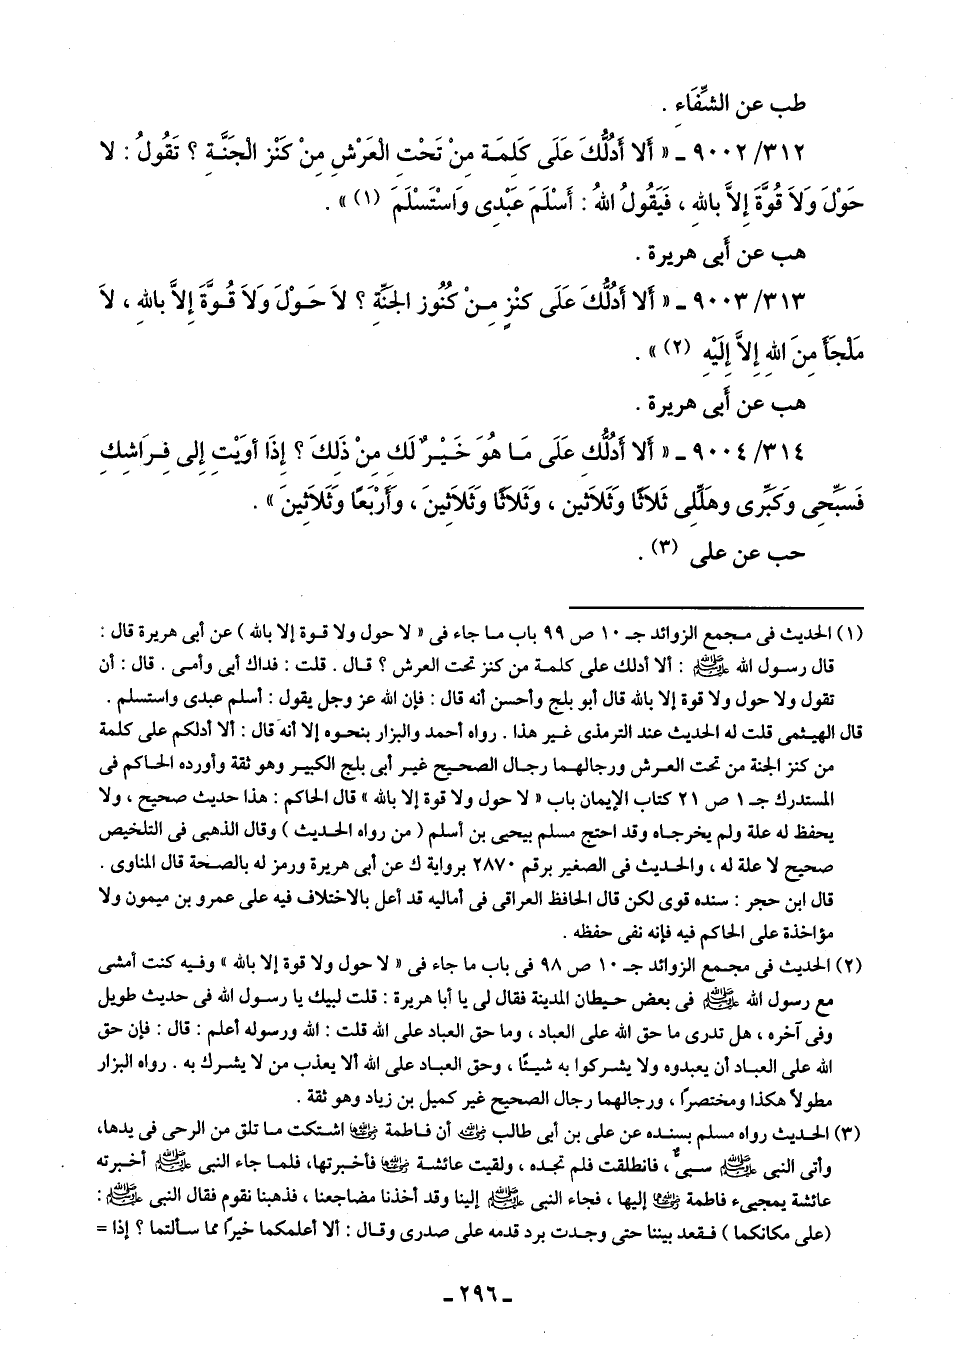 طب عن الشِّفَاءِ .
٩٠٠٢/٣١٢ ـ « أَلا أَدُلُّكَ عَلَى كَلِمَةٍ مِنْ تَحْتِ الْعَرْشِ مِنْ كَنْزِ الْجَنَّةِ ؟ تَقُولُ : لا
حَوْلَ وَلاَ قُوَّةَ إِلاَّ بِاللهِ ، فَيَقُولُ اللهُ : أَسْلَمَ عَبْدِى وَاسْتَسْلَمَ (١) » .
هب عن أَبى هريرة .
٩٠٠٣/٣١٣ ـ « أَلا أَدُلُّكَ عَلَى كَنْزٍ مِنْ كُنُوزِ الجَنَّةِ ؟ لاَ حَوْلَ وَلاَ قُوَّةَ إِلاَّ بِاللهِ ، لاَ
مَلْجَأَ مِنَ اللهِ إِلاَّ إِلَيْهِ (٢) » .
هب عن أَبى هريرة .
٩٠٠٤/٣١٤ ـ « أَلا أَدُلُّكِ عَلَى مَا هُوَ خَيْرٌ لَكِ مِنْ ذَلِكَ ؟ إِذَا أَوَيْتِ إِلى فِرَاشِكِ
فَسَبِّحِى وَكَبِّرِى وهَلِّلِى ثَلاَثًا وَثَلاَثِين ، وَثَلاَثًا وَثَلاَثِينَ ، وَأَرْبَعًا وَثَلاَثِينَ » .
حب عن على (٣) .
(١) الحديث فى مجمع الزوائد جـ ١٠ ص ٩٩ باب ما جاء فى « لا حول ولا قوة إلا بالله ) عن أبى هريرة قال :
قال رسول الله ﷺ : ألا أدلك على كلمة من كنز تحت العرش ؟ قال . قلت : فداك أبى وأمى . قال : أن
تقول ولا حول ولا قوة إلا بالله قال أبو بلج وأحسن أنه قال : فإن الله عز وجل يقول : أسلم عبدى واستسلم .
قال الهيثمى قلت له الحديث عند الترمذى غير هذا . رواه أحمد والبزار بنحوه إلا أنه قال : ألا أدلكم على كلمة
من كنز الجنة من تحت العرش ورجالهما رجال الصحيح غير أبى بلج الكبير وهو ثقة وأورده الحاكم فى
المستدرك جـ ١ ص ٢١ كتاب الإيمان باب « لا حول ولا قوة إلا بالله » قال الحاكم : هذا حديث صحيح ، ولا
يحفظ له علة ولم يخرجاه وقد احتج مسلم بيحيى بن أسلم ( من رواه الحديث ) وقال الذهبى فى التلخيص
صحيح لا علة له ، والحديث فى الصغير برقم ٢٨٧٠ برواية ك عن أبى هريرة ورمز له بالصحة قال المناوى .
قال ابن حجر : سنده قوى لكن قال الحافظ العراقى فى أماليه قد أعل بالاختلاف فيه على عمرو بن ميمون ولا
مؤاخذة على الحاكم فيه فإنه نفى حفظه .
(٢) الحديث فى مجمع الزوائد جـ ١٠ ص ٩٨ فى باب ما جاء فى « لا حول ولا قوة إلا بالله » وفيه كنت أمشى
مع رسول الله ﷺ فى بعض حيطان المدينة فقال لى يا أبا هريرة : قلت لبيك يا رسول الله فى حديث طويل
وفى آخره ، هل تدرى ما حق الله على العباد ، وما حق العباد على الله قلت : الله ورسوله أعلم : قال : فإن حق
الله على العباد أن يعبدوه ولا يشركوا به شيئًا ، وحق العباد على الله ألا يعذب من لا يشرك به . رواه البزار
مطولاً هكذا ومختصرًا ، ورجالهما رجال الصحيح غير كميل بن زياد وهو ثقة .
(٣) الحديث رواه مسلم بسنده عن على بن أبى طالب رضي الله عنه أن فاطمة رضي الله عنها اشتكت ما تلق من الرحى فى يدها،
وأتى النبى ﷺ سبىٌ ، فانطلقت فلم تجده ، ولقيت عائشة رضي الله عنها فأخبرتها، فلما جاء النبى ﷺ أخبرته
عائشة بمجيىء فاطمة رضي الله عنها إليها ، فجاء النبى ﷺ إلينا وقد أخذنا مضاجعنا ، فذهبنا نقوم فقال النبى ﷺ :
(على مكانكما ) فقعد بيننا حتى وجدت برد قدمه على صدرى وقال : ألا أعلمكما خيرًا مما سألتما ؟ إذا =
ـ ٢٩٦ ـ